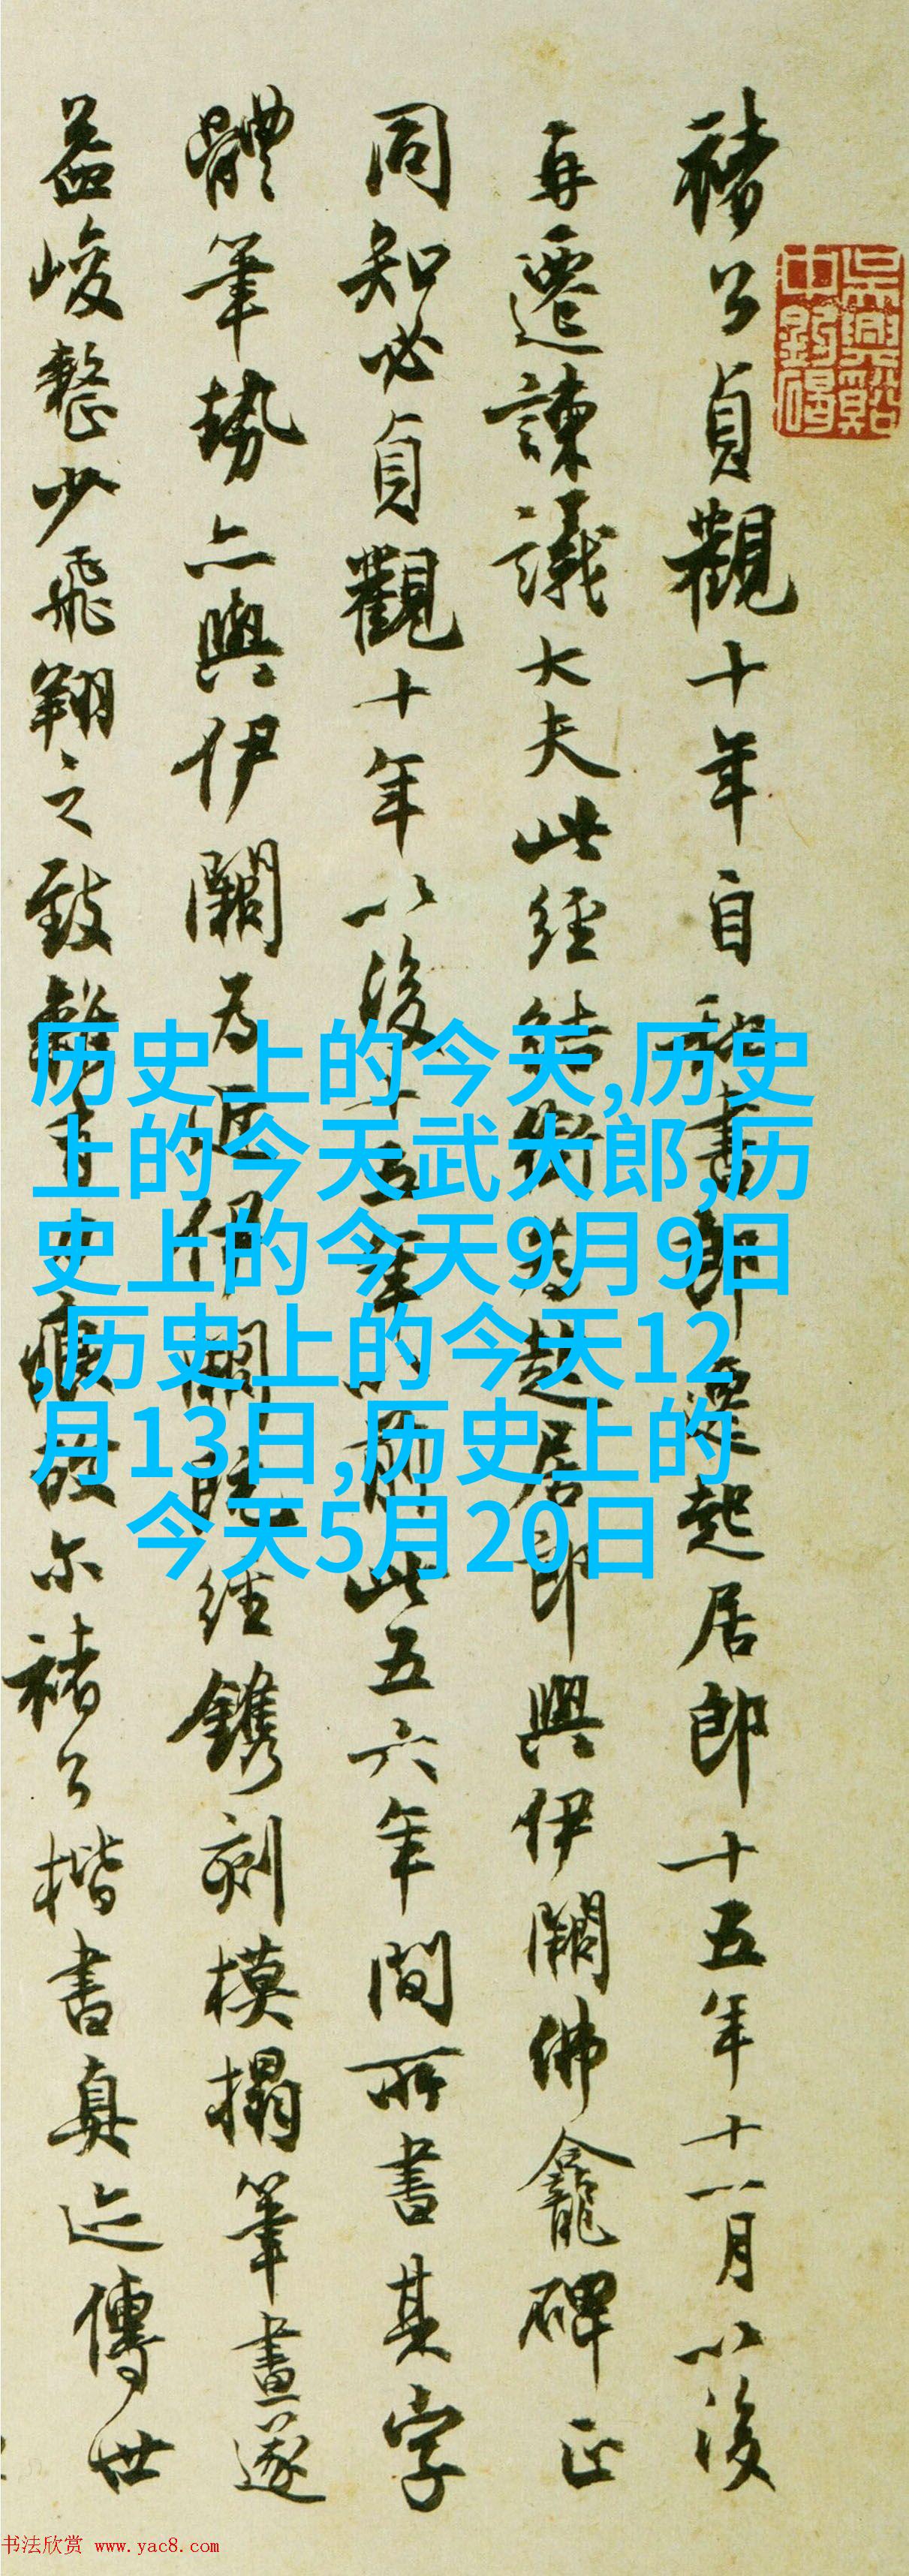 褚公貞觀十年自秘書郎遷起居郎十五年十一月以後
再遷諫議大夫此經結銜為起居郎與伊闕佛龕碑正
同知必貞觀十年以後十五年以前此五六年間所書其字
體筆勢亦與伊闕為近伊闕既經鐫刻模搨筆畫遂
益峻整少飛翔之致 痕故尔褚公楷書真迹傳世
历史上的今天,历史
上的今天武大郎,历
史上的今天9月9日
,历史上的今天12
月13日,历史上的
今天5月20日
书法欣赏 www.yac8.com